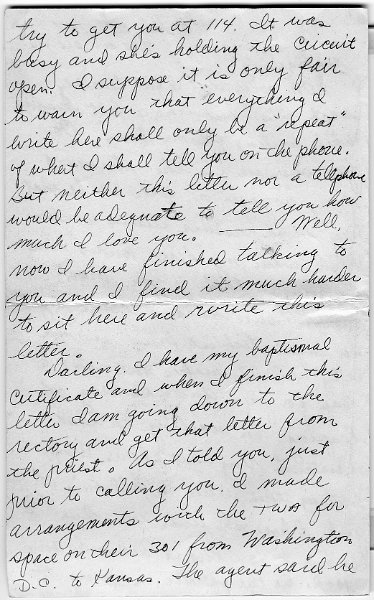 try to get you at 114. It was
busy and she's holding the circuit
open. I suppose it is only fair
to warn you that "everything I
write here shall only be a "repeat"
of what I shall tell you on the phone.
But neither this letter nor a telephone
would be adequate to tell you how
much I love you. —— Well,
now I have finished talking to
you and I find it much harder
to sit here and write this
letter.
Darling, I have my baptismal
certificate and when I finish this
letter I am going down to the
rectory and get that letter from
the priest. As I told you, just
prior to calling you, I made
arrangements with the TWA for
space on their 301 from Washington
D.C. to Kansas. The agent said he